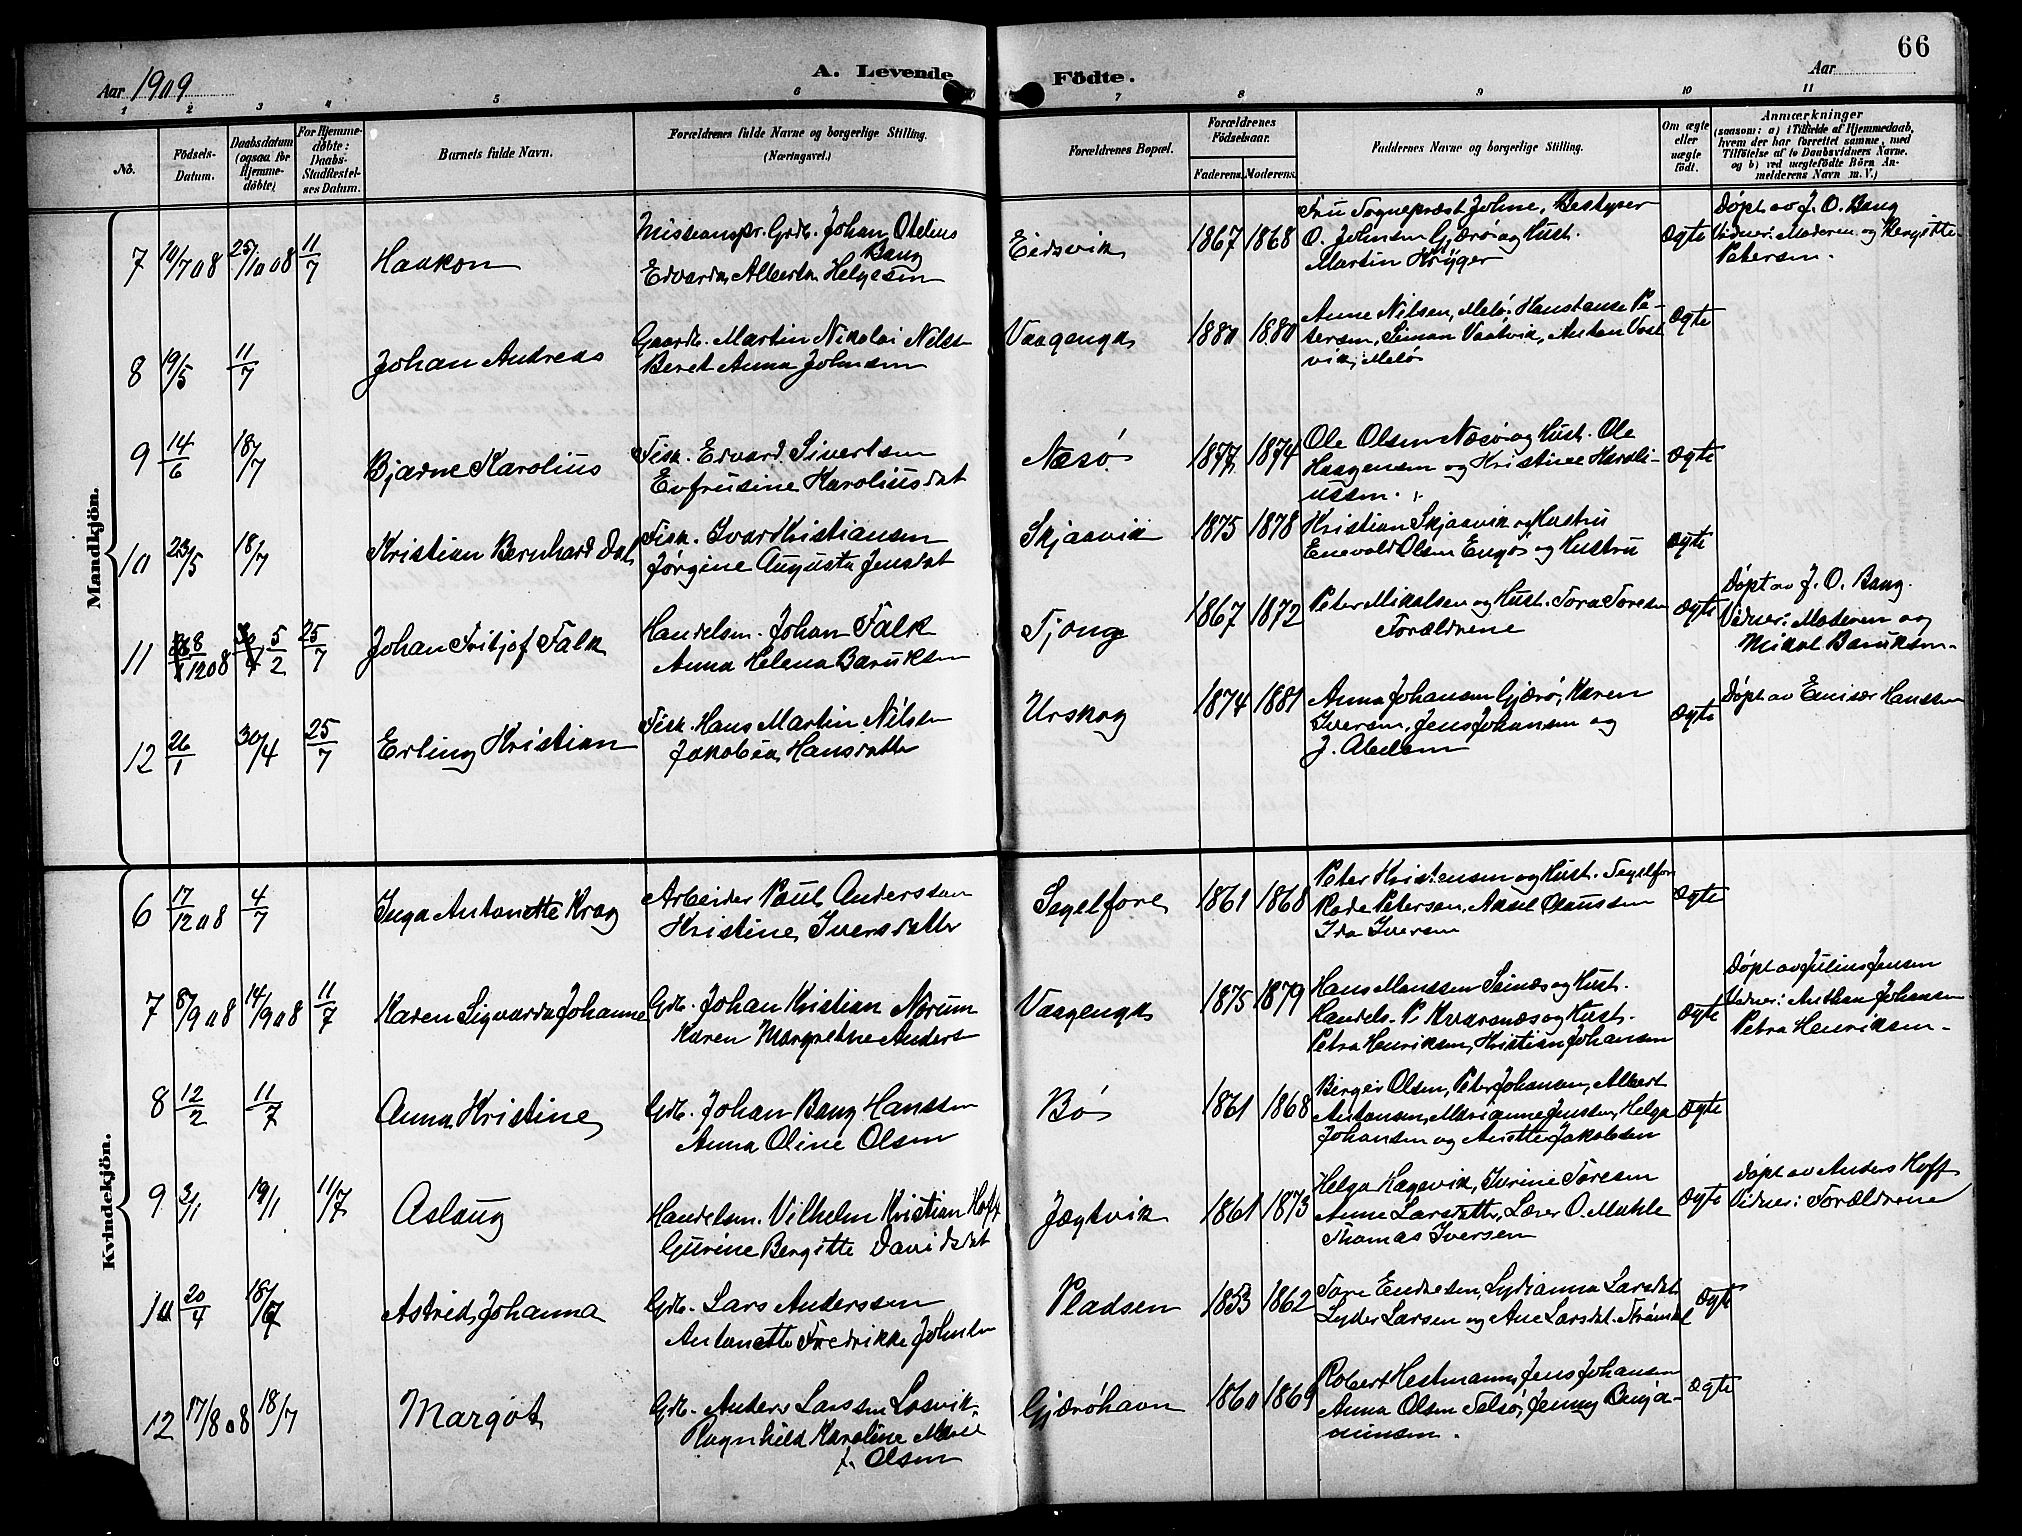 66
Aar 1909
A. Levende Födte.
Aar
1 2 3 4 5 6 7 8 9 10 11
No.
Födsels-Datum.
Daabsdatum (ogsaa for Hjemme-döbte)
For Hjemme-döbte: Daabs-Stadfæstel-ses Datum.
Barnets fulde Navn.
Forældrenes fulde Navne og borgerlige Stilling.
(Næringsvei.)
Forældrenes Bopæl.
Forældrenes Födselsaar.
Faderens. Moderens.
Faddernes Navne og borgerlige Stilling.
Om ægte eller uægte födt.
Anmærkninger
(saasom: a) i Tilfælde af Hjemmedaab,
hvem der har forrettet samme, med
Tilföielse af to Daabsvidners Navne,
og b) ved uegtefödte Börn An-
melderens Navn m. V.)
Mandkjön.
7 10/7 08 25/10 08 11/7 Haakon
Missionspr. Grdb. Johan Otelius
Bang
Edvarda Alberta Helgesen
Eidsvik 1867 1868
Fru Sognepræst Johne, Bestyrer
O. Johnsen Gjærø og Hust.
Martin Krÿger
Ægte
Døpt av J. O. Bang
Vidner: Moderen og Bergitte
Petersen.
8 19/5 11/7 Johan Andreas
Gaardb. Martin Nikolai Nilss
Beret Anna Johnsen
Vaagengx 1880 1880
Anne Nilsen, Melø, Hanstense Pe-
tersen, Simon Vaatvik, Anton Vaat
vik, Melø
Ægte
9 14/6 18/7 Bjarne Karolius
Fisk. Edvard Sivertsen
Evfrusine Karoliusdat
Næsø 1877 1874
Ole Olsen Næsø og Hust. Ole
Haagensen og Kristine Karoli-
ussen.
Ægte
10 23/5 18/7 Kristian Bernhard Dal
Fisk. Ivar Kristiansen
Jørgine Augusta Jensdat
Skjaavik 1875 1878
Kristian Skjaavik og Hustru
Enevald Olsen Engø og Hustru
Ægte
11 8/12 08 5/2 25/7 Johan Fritjof Falk
Handelsm. Johan Falk
Anna Helena Baruksen
Tjong 1867 1872
Peter Mikalsen og Hust. Tora Toresen
Forældrene
Ægte
Døpt av J. O. Bang.
Vidner: Moderen og
Mikal Baruksen.
12 26/1 30/4 25/7 Erling Kristian
Fisk. Hans Martin Nilsen
Jakobia Hansdatter
Urskog 1874 1881
Anna Johansen Gjærø, Karen
Iversen, Jens Johansen og
J. Abelsen
Ægte
Døpt av Emisær Hanssen
Kvindekjön.
6 17/12 08 4/7 Inga Antonette Krag
Arbeider Paul Anderssen
Kristine Iversdatter
Segelfore 1861 1868
Peter Kristensen og Hust. Segelfor
Rode Petersen, Aksel Claussen
Ida Iversen
Ægte
7 8/9 08 14/9 08 11/7 Karen Sigvarda Johanne
Grdb. Johan Kristian Nørum
Karen Margrethe Anders
Vaagengx 1875 1879
Hans Monssen Selnæs og Hust.
Handels. P. Kvarsnæs og Hust.
Petra Henriksen, Kristian Johansen
Ægte
Døpt av Julius Jensen
Vidner: Anthon Johansen
Petra Henriksen
8 12/2 11/7 Anna Kristine
Grdb. Johan Bang Hanssen
Anna Oline Olsen
Bø 1861 1868
Birger Olsen, Peter Johansen, Albert
Antonsen, Marianne Jenssen, Helga
Johansen og Anette Jakobsen
Ægte
9 3/1 19/1 11/7 Aslaug
Handelsm. Vilhelm Kristian Hoff
Gurine Bergitte Davidsdat
Jægtvik 1861 1873
Helga Hagevik, Iverine Toresen
Anne Larsdatter, Lærer O. Mahle
Thomas Iversen
Ægte
Døpt av Anders Hoff
Vidner: Forældrene
20/4 18/7 Astrid Johanna
Grdb. Lars Anderssen
Antonette Fredrikke Johnsen
Pladsen 1853 1862
Tore Endresen, Lydianna Larsdat
Lyder Larsen og Ane Larsdat. Strømdal
Ægte
12 17/8 08 18/7 Margot
Grdb. Anders Larssen Losvik
Ragnhild Karoline Marie
f. Olsen
Gjærøhavn 1860 1869
Robert Hestmann, Jens Johansen
Anna Olsen Selsø, Jenny Benja-
minsen.
Ægte